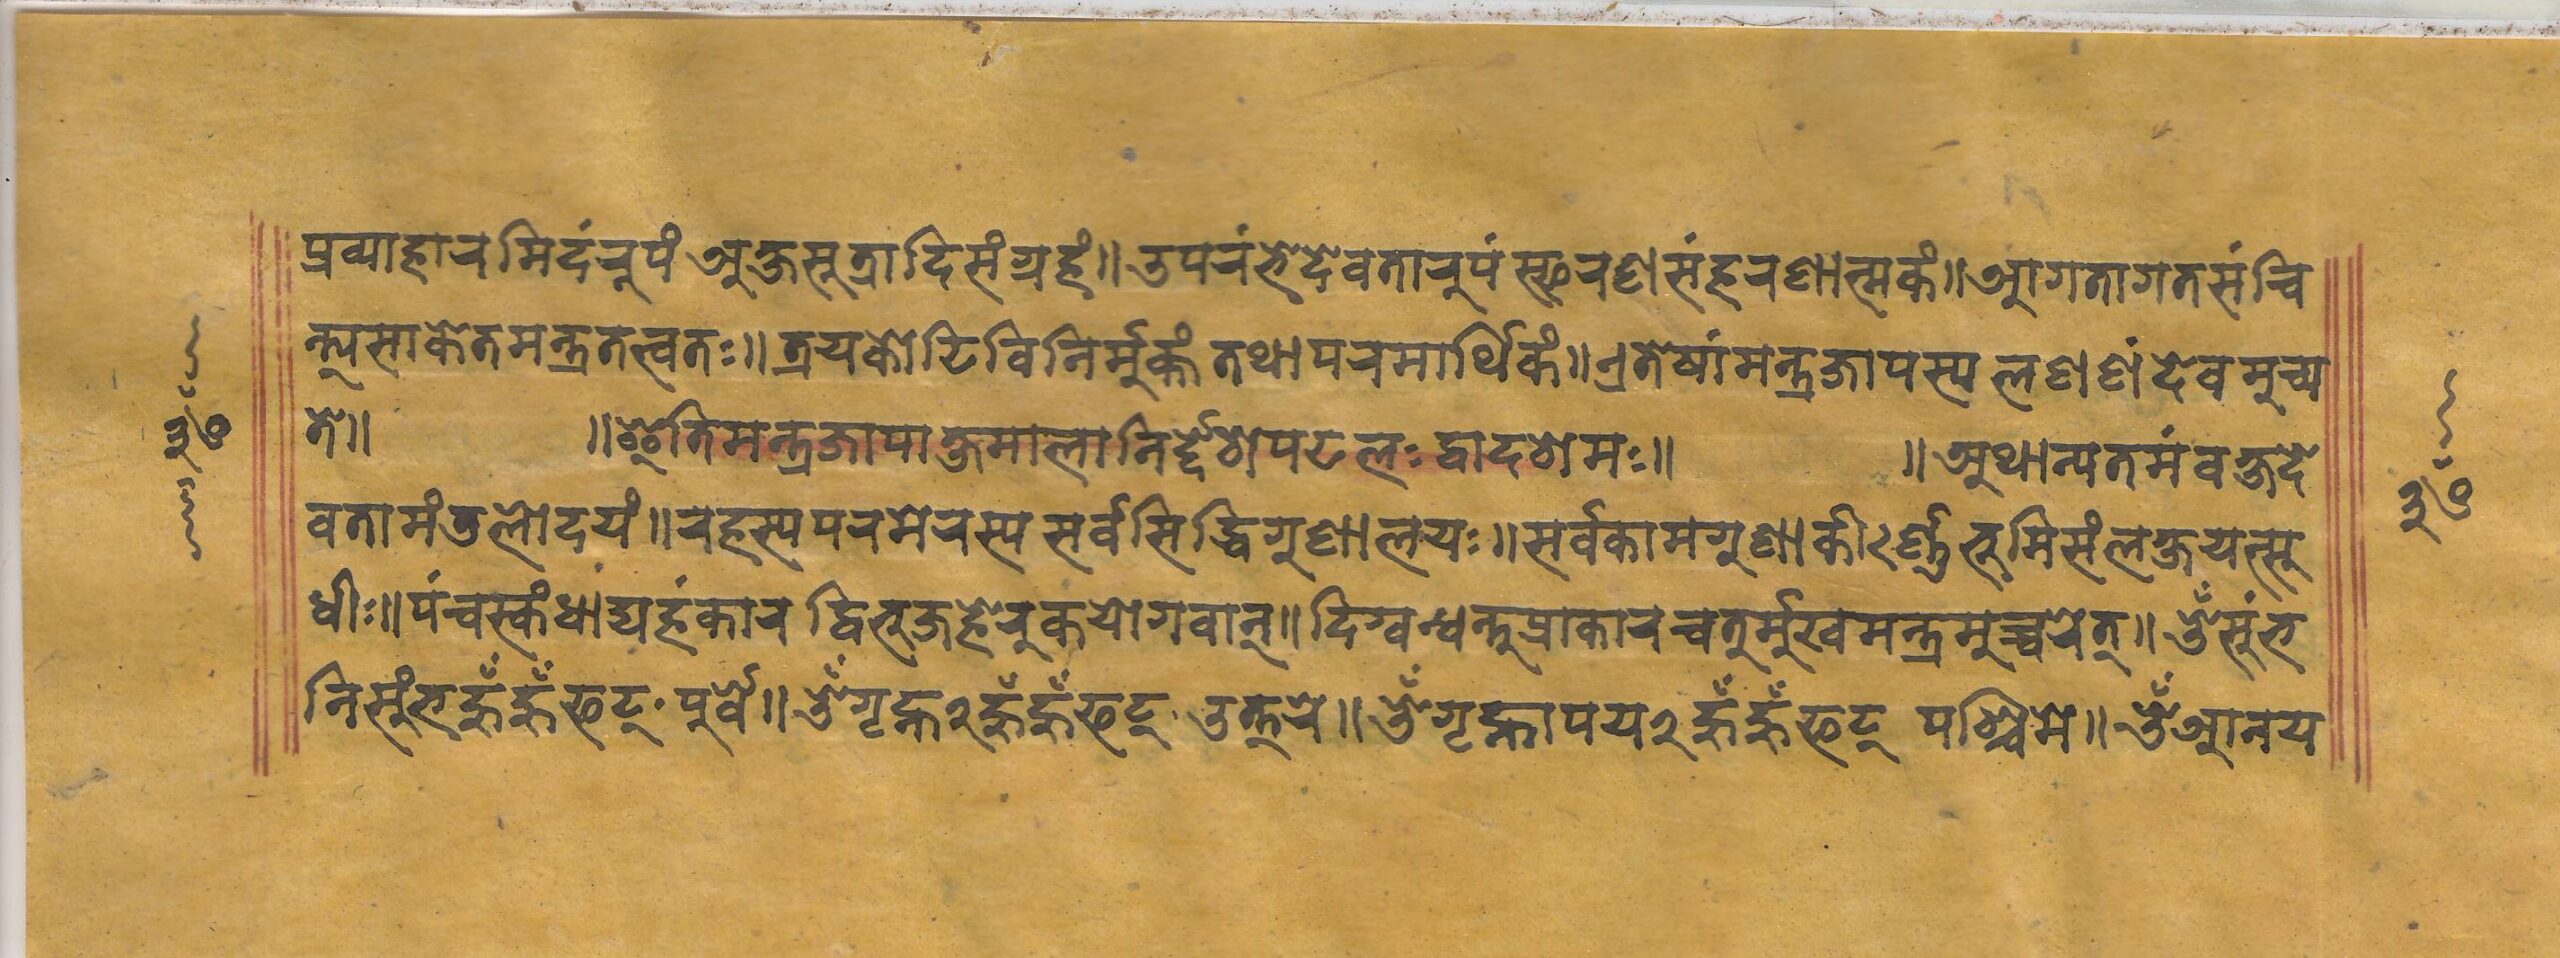 प्रव्याहारमिदंरूपं अक्षसूत्रादिसंग्रहं॥ उपरंभेदेवतारूपं स्फुरणसंहरणात्मकं॥ आगतागतसंचि
न्त्यसाकेतमन्त्रतत्त्वतः॥ त्रयकोटिविनिर्मुक्तं तथापरमार्थिकं॥ एतेषांमन्त्रजापस्य लक्षणं देवमुच्य
ते॥ ॥ इतिमन्त्रजापाक्षमालानिर्द्देशोपटलः द्वादशोमः॥ ॥ अथान्यतमंवक्षदे
वतामंडलोदयं॥ रहस्यपरमेरस्य सर्वसिद्धिगुणालयः॥ सर्वकामगुणाकीर्ण्णभूमिसंलक्षयत्सु
धीः॥ पंचस्कंधांद्यहंकार द्विभुजहेरुकयोगवान्॥ दिग्बन्धन्तुप्राकारचतुर्मुखमन्त्रमुच्चरेत्॥ ॐसुंभ
निसुंभहूँहूँफट् पूर्वे॥ ॐगृह्न२हूँहूँफट् उत्तरे॥ ॐगृह्नापय२हूँहूँफट् पश्चिमे॥ ॐआनय
३७
३७